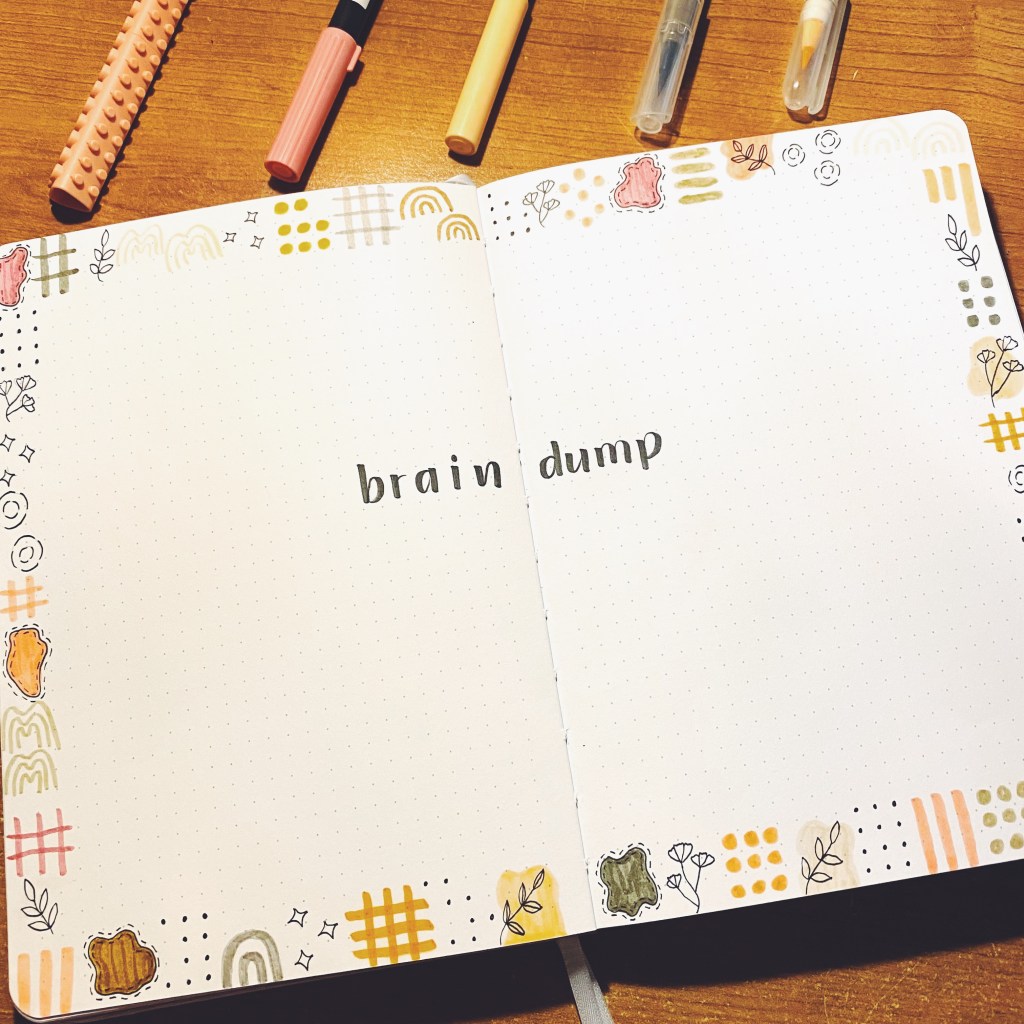 brain dump